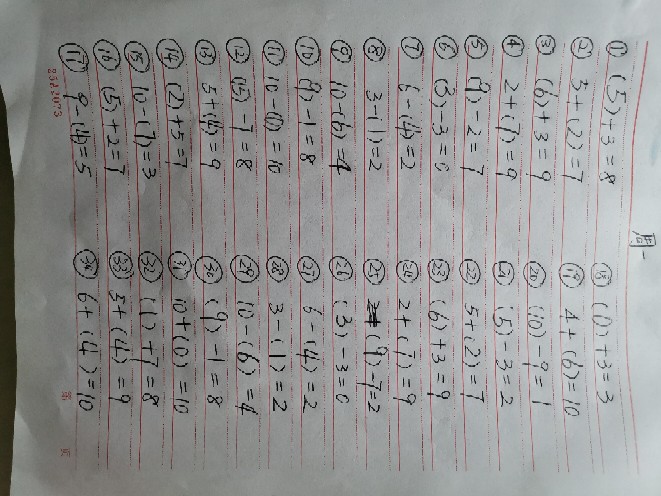 周一
① (5)+3=8
② 5+(2)=7
③ (6)+3=9
④ 2+(7)=9
⑤ (9)-2=7
⑥ (3)-3=0
⑦ 6-(4)=2
⑧ 3-(1)=2
⑨ 10-(6)=4
⑩ (9)-1=8
⑪ 10-(0)=10
⑫ (15)-7=8
⑬ 5+(4)=9
⑭ (2)+5=7
⑮ 10-(7)=3
⑯ (5)+2=7
⑰ 9-(4)=5
⑱ (0)+3=3
⑲ 4+(6)=10
⑳ (10)-9=1
㉑ (5)-3=2
㉒ 5+(2)=7
㉓ (6)+3=9
㉔ 2+(7)=9
㉕ (9)-7=2
㉖ (3)-3=0
㉗ 6-(4)=2
㉘ 3-(1)=2
㉙ 10-(6)=4
㉚ (9)-1=8
㉛ 10+(0)=10
㉜ (1)+7=8
㉝ 5+(4)=9
㉞ 6+(4)=10